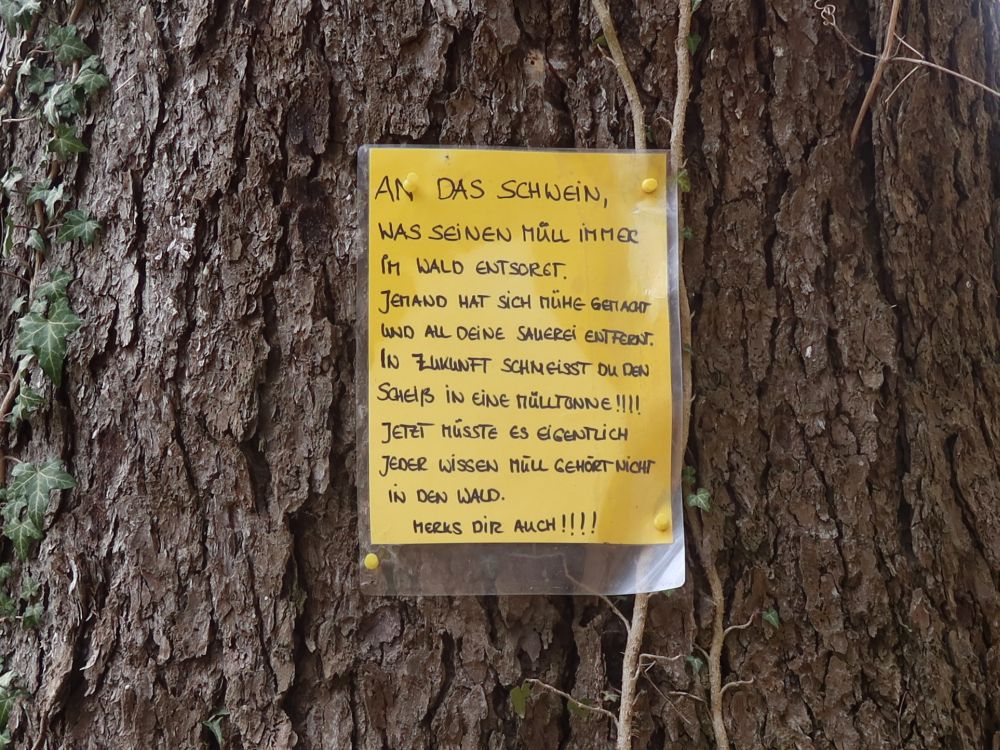 AN DAS SCHWEIN,
WAS SEINEN MÜLL IMMER
IM WALD ENTSORGT.
JEMAND HAT SICH MÜHE GEMACHT
UND ALL DEINE SAUEREI ENTFERNT.
IN ZUKUNFT SCHMEISST DU DEN
SCHEIß IN EINE MÜLLTONNE!!!!
JETZT MÜSSTE ES EIGENTLICH
JEDER WISSEN MÜLL GEHÖRT NICHT
IN DEN WALD.
MERKS DIR AUCH!!!!